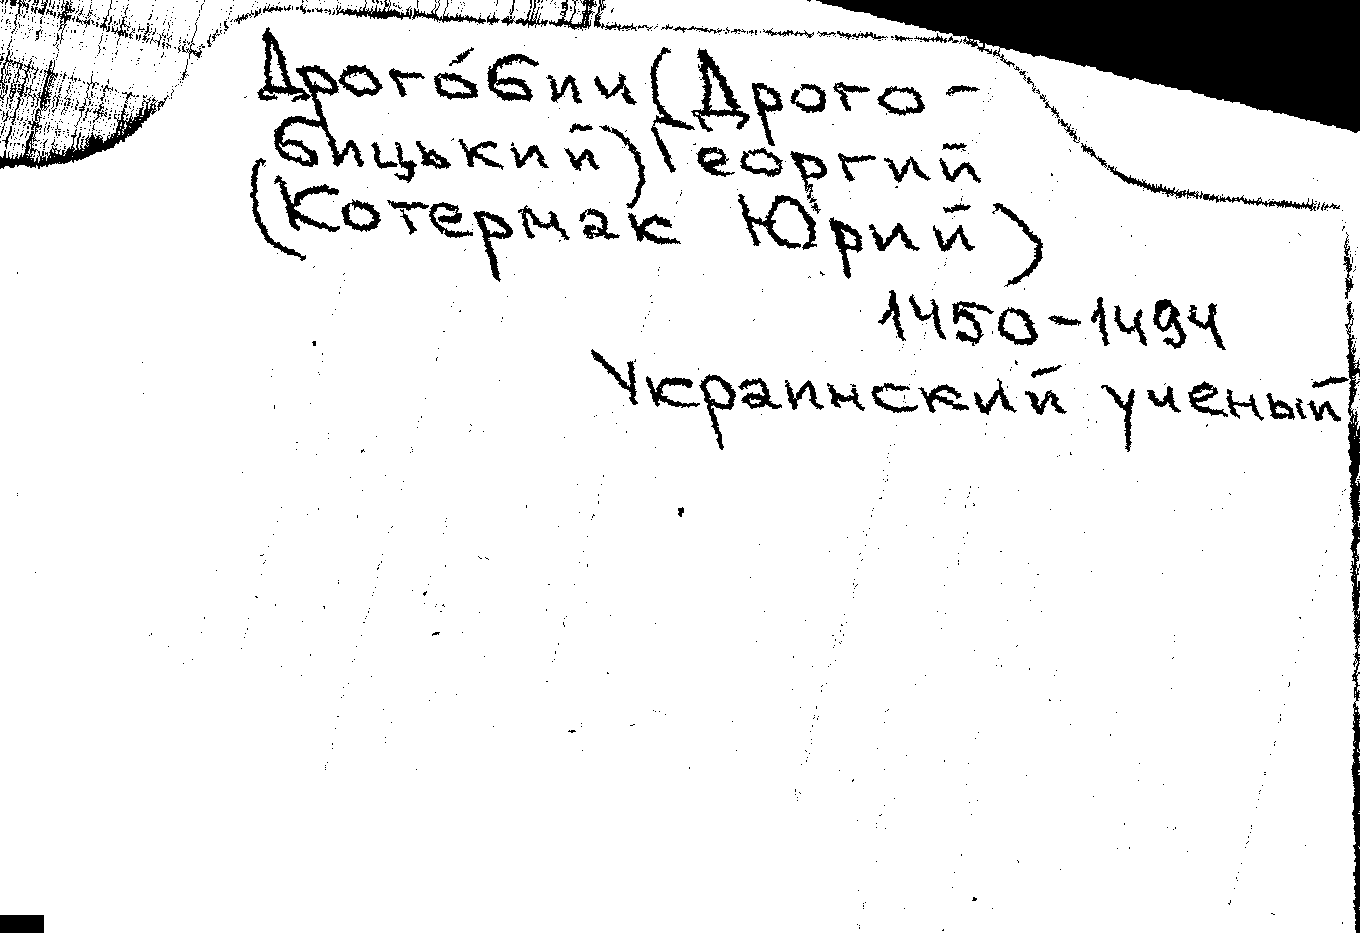 Дрого́бич (Дрого-
бицький) Георгий
(Котермак Юрий)
1450-1494
Украинский ученый